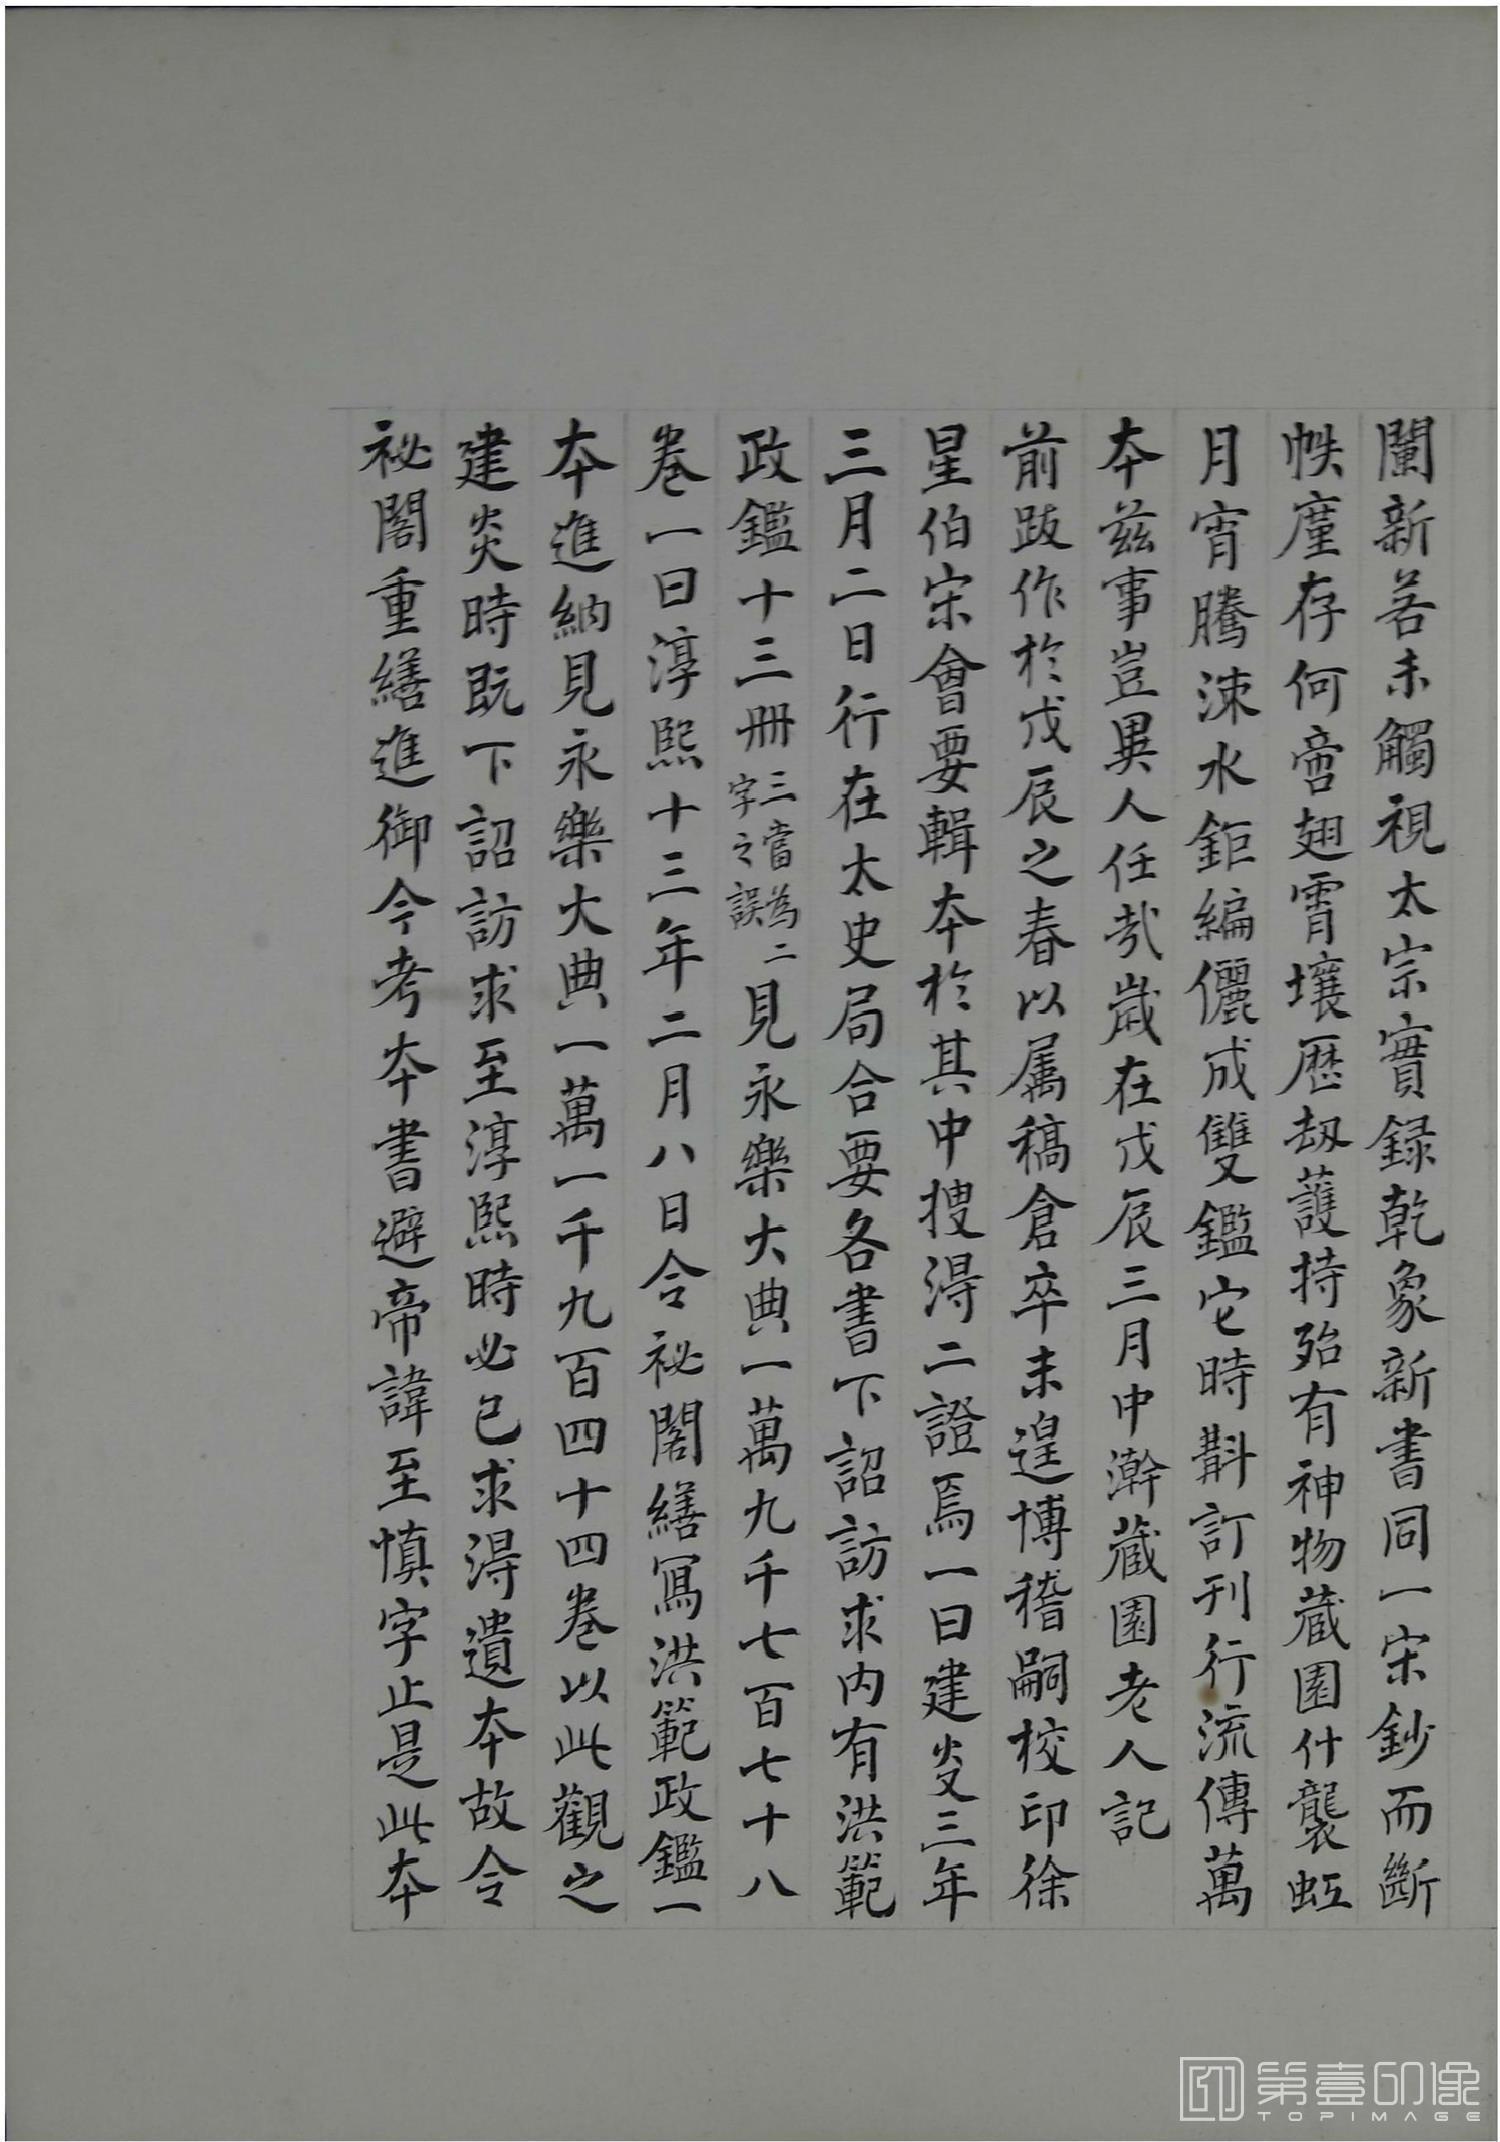 闌新若未觸視太宗實録乾象新書同一宋鈔而斷
帙廑存何啻翅霄壤歷劫護持殆有神物藏園什襲虹
月宵騰涑水鉅編儷成雙鑑它時斠訂刊行流傳萬
本兹事豈異人任哉歲在戊辰三月中澣藏園老人記
前跋作於戊辰之春以属稿倉卒未遑博稽嗣校印徐
星伯宋會要輯本於其中搜得二證焉一曰建炎三年
三月二日行在太史局合要各書下詔訪求内有洪範
政鑑十三冊三當為二字之誤見永樂大典一萬九千七百七十八
卷一曰淳熙十三年二月八日令祕閣繕寫洪範政鑑一
本進納見永樂大典一萬一千九百四十四卷以此觀之
建炎時既下詔訪求至淳熙時必已求得遺本故令
祕閣重繕進御今考本書避帝諱至慎字止是此本
第壹印像
TOPIMAGE